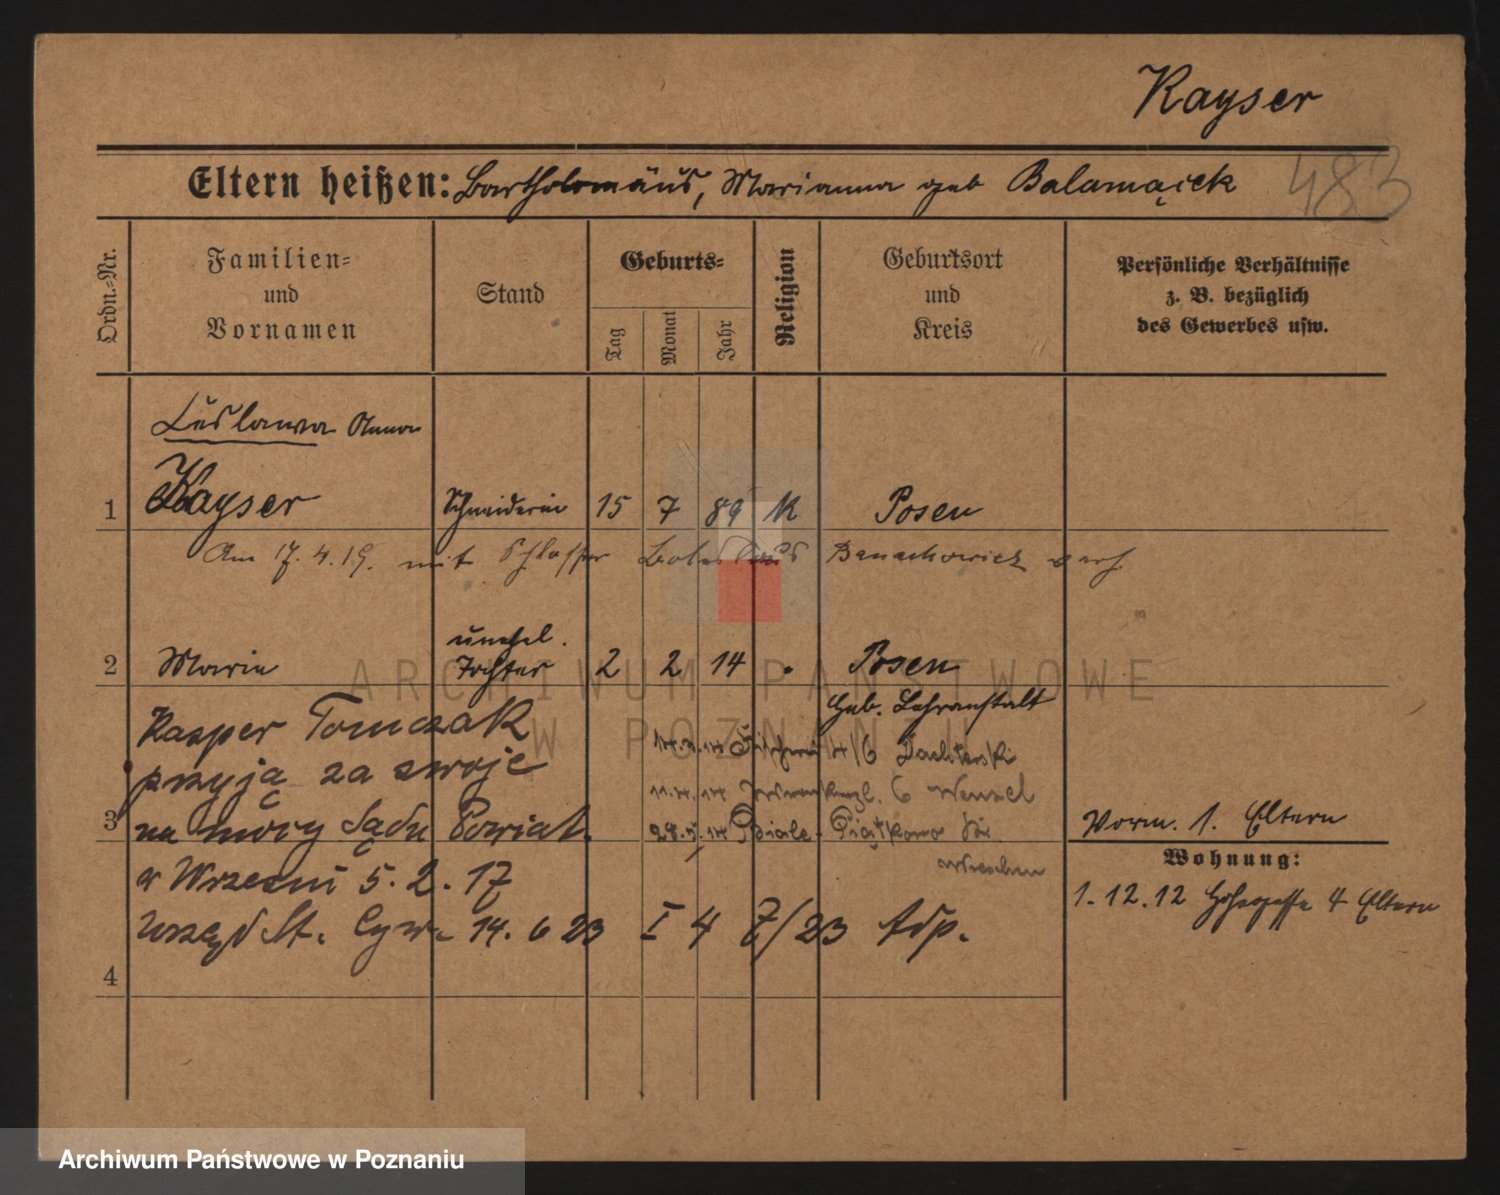 Kayser
Eltern heißen: Bartholomäus, Marianna geb Balamącek
483
Ordn.=Nr.
Familien=
und
Vornamen
Stand
Geburts=
Tag
Monat
Jahr
Religion
Geburtsort
und
Kreis
Persönliche Verhältnisse
z. B. bezüglich
des Gewerbes usw.
Leslawa Anna
1 Kayser Schneiderin 15 7 89 K Posen
Am 17.4.19. mit Schlosser Boleslaus Banachowicz verh.
unehel.
2 Marie Tochter 2 2 14 . Posen
Geb. Lehranstalt
Kasper Tomczak
14/6
przyją za swoje
11.4.14 6 Wenzel
3 na mocy Sądu Powiat.
28.5.14 Biale- Piątkowo
Vorm. 1. Eltern
Wohnung:
w Wrześni 5.2.17
Wreschen
1.12.12 Hohegasse 4 Eltern
Urząd St. Cyw. 14.6 23 I 4 Z/23 Adp.
4
ARCHIWUM PAŃSTWOWE
W POZNANIU
Archiwum Państwowe w Poznaniu